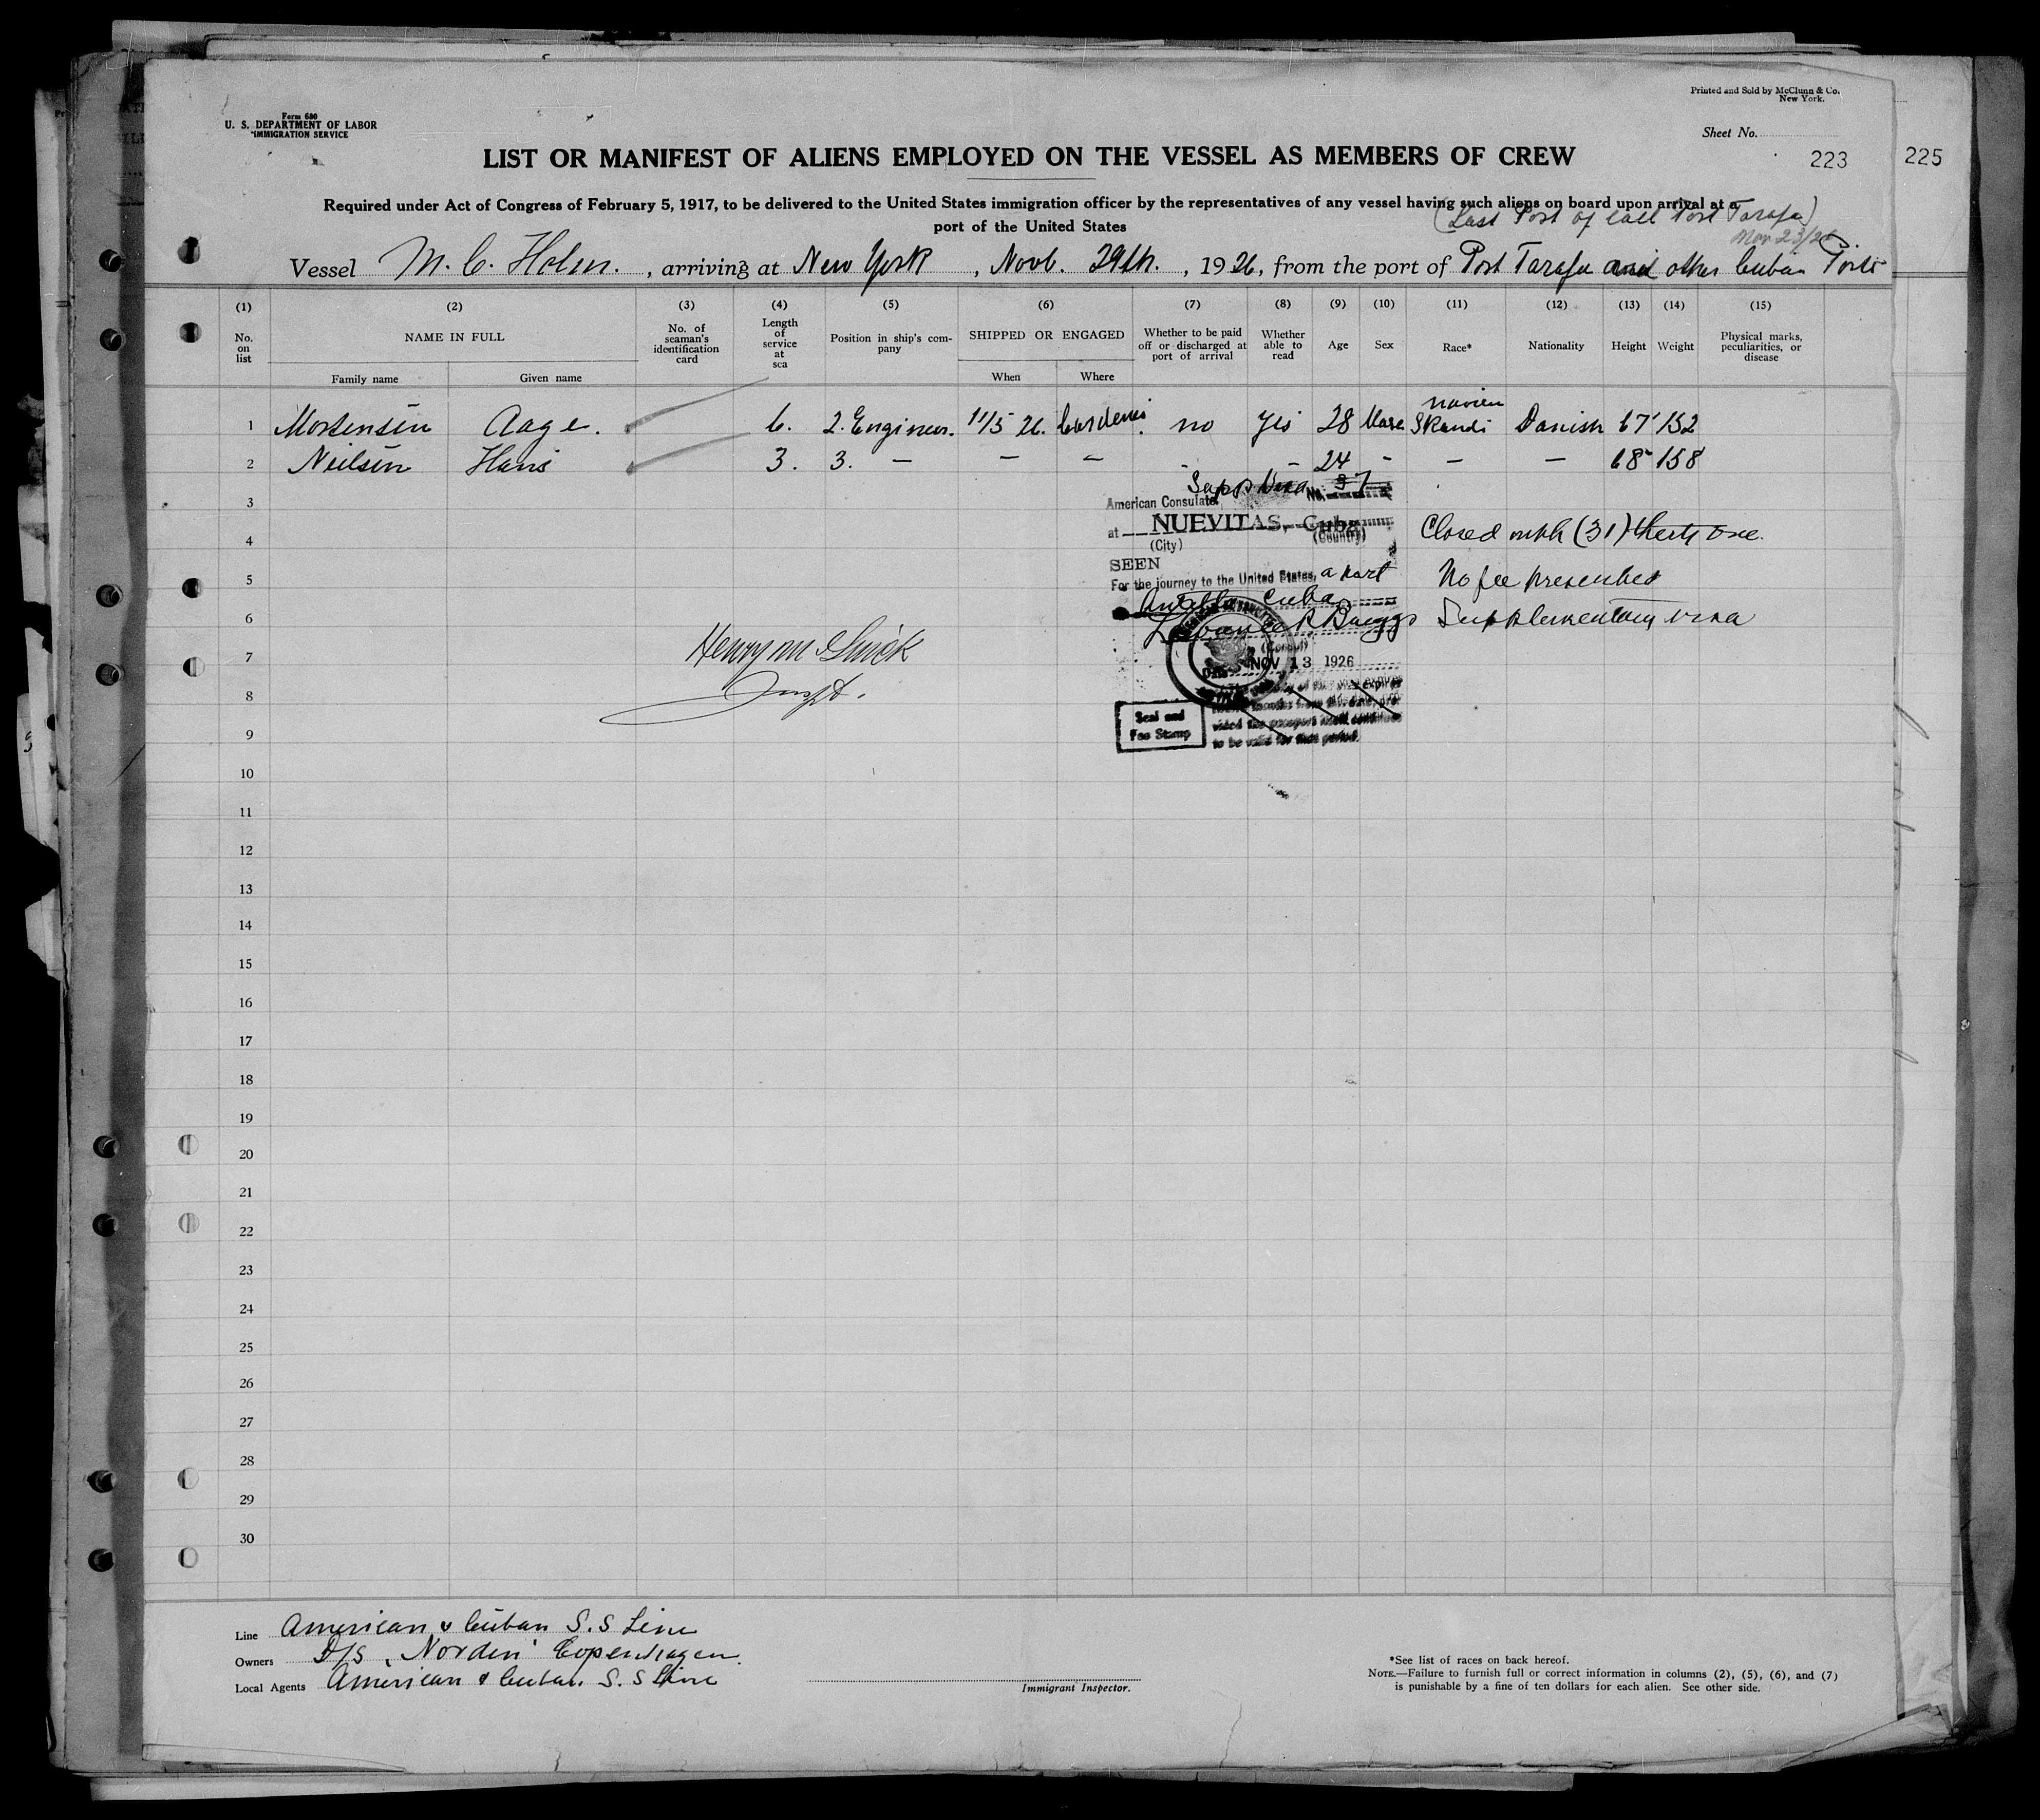 Form 680
U. S. DEPARTMENT OF LABOR
IMMIGRATION SERVICE
Printed and Sold by McClunn & Co.
New York.
Sheet No.
LIST OR MANIFEST OF ALIENS EMPLOYED ON THE VESSEL AS MEMBERS OF CREW
223
225
Required under Act of Congress of February 5, 1917, to be delivered to the United States immigration officer by the representatives of any vessel having such aliens on board upon arrival at a
port of the United States
(Last Port of call Port Tarafa)
Nov 23/26
Vessel M. C. Holm. , arriving at New York , Novb. 29th. , 1926, from the port of Port Tarafa and other Cuban Ports
(1) (2) (3) (4) (5) (6) (7) (8) (9) (10) (11) (12) (13) (14) (15)
No. on list NAME IN FULL No. of seaman's identification card Length of service at sea Position in ship's company SHIPPED OR ENGAGED Whether to be paid off or discharged at port of arrival Whether able to read Age Sex Race* Nationality Height Weight Physical marks, peculiarities, or disease
Family name Given name When Where
1 Mortensen Aage. 6. 2. Engineer. 11/5 26. Cardenas. no Yes 28 Male Skandinavien Danish 67" 152
2 Neilsen Hans 3. 3. — — — - — 24 - — — 68" 158
3
4
5
6
7
8
9
10
11
12
13
14
15
16
17
18
19
20
21
22
23
24
25
26
27
28
29
30
Supp Visa No. 37
American Consulate
at NUEVITAS, Cuba
(City) (Country)
SEEN
For the journey to the United States, a part
Antilla Cuba
(Consul)
Date NOV 13 1926
Seal and
Fee Stamp
to be valid for that period.
Closed with (31) thirty one.
No fee prescribed
Supplementary visa
Henry M
Inspt.
Line American & Cuban S. S Line
Owners D/S "Norden" Copenhagen.
Local Agents American & Cuban S. S Line
Immigrant Inspector.
*See list of races on back hereof.
NOTE.—Failure to furnish full or correct information in columns (2), (5), (6), and (7)
is punishable by a fine of ten dollars for each alien. See other side.